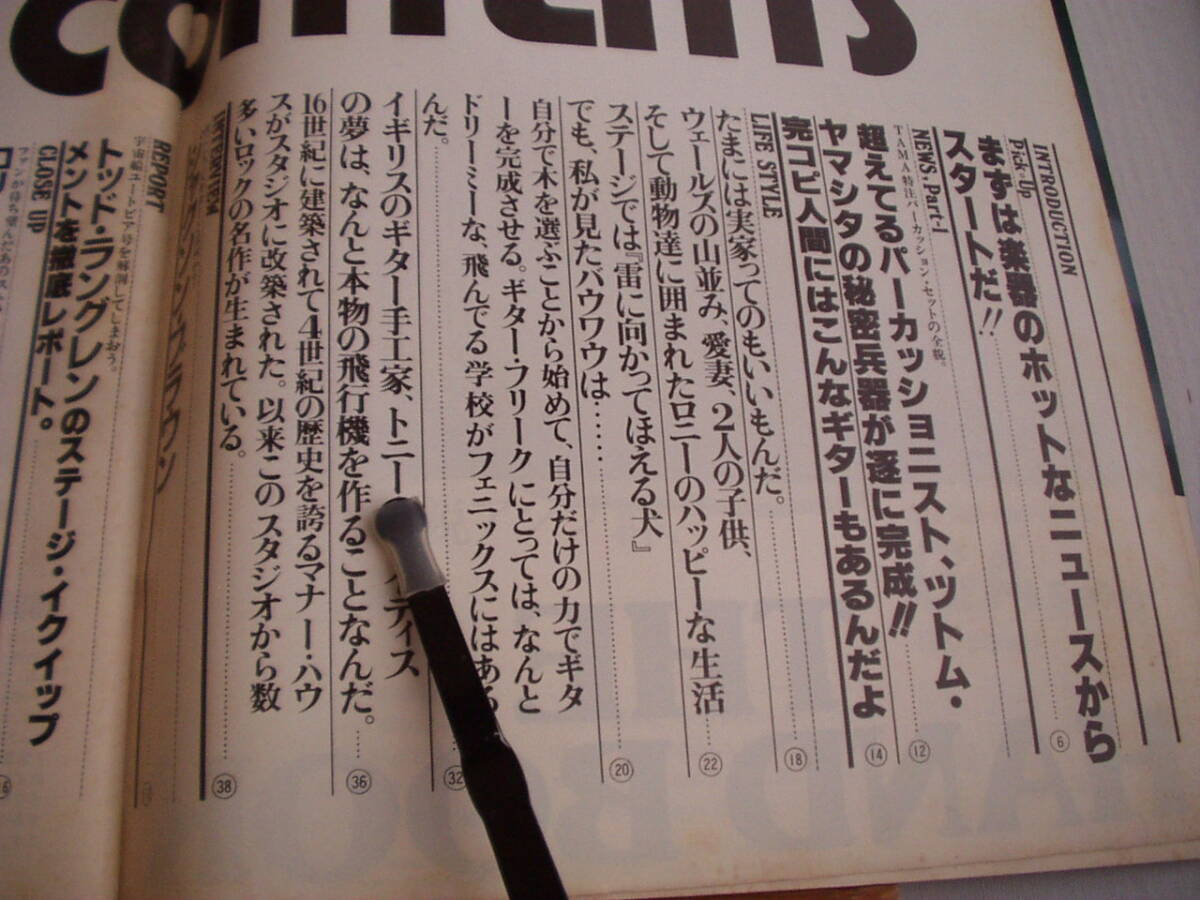 contents
INTRODUCTION
Pick-Up
まずは楽器のホットなニュースから
スタートだ!! 6
NEWS Part-1
TAMA特注パーカッション・セットの全貌。
超えてるパーカッショニスト、ツトム・
ヤマシタの秘密兵器が遂に完成!! 12
完コピ人間にはこんなギターもあるんだよ 14
LIFE STYLE
たまには実家ってのもいいもんだ。 18
ウェールズの山並み、愛妻、2人の子供、
そして動物達に囲まれたロニーのハッピーな生活 22
ステージでは『雷に向かってほえる犬』
でも、私が見たバウワウは…… 20
自分で木を選ぶことから始めて、自分だけの力でギタ
ーを完成させる。ギター・フリークにとっては、なんと
ドリーミーな、飛んでる学校がフェニックスにはある
んだ。 32
イギリスのギター手工家、トニー ティス
の夢は、なんと本物の飛行機を作ることなんだ。 36
16世紀に建築されて4世紀の歴史を誇るマナー・ハウ
スがスタジオに改築された。以来このスタジオから数
多いロックの名作が生まれている。 38
INTERVIEW
ブラウン
REPORT
宇宙船ユートピア号を解剖してしまおう。
トッド・ラングレンのステージ・イクイップ
メントを徹底レポート。
CLOSE UP
ファンが待ち望んだあの